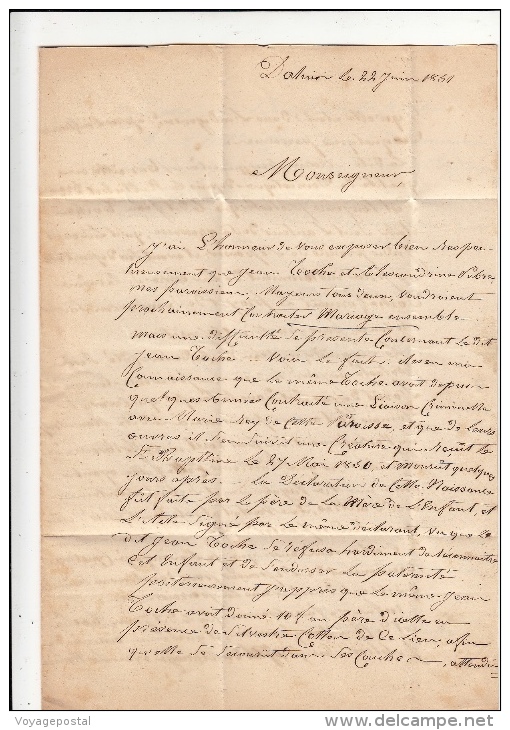 le 22 Juin 1851
Monseigneur,
J'ai l'honneur de vous exposer bien respec
tueusement que Jean Toche et Alexandrine
mes paroissiens, Majeurs tous deux, voudroient
prochainement Contracter Mariage ensemble
mais une difficulté se présente Concernant le dit
Jean Toche .. Voici le fait. il est à ma
Connaissance que le même Toche avoit depuis
quelques années Contracté une Liaison Criminelle
avec Marie Rey de Cette Paroisse, et que de Leurs
œuvres il s'en suivit une Créature qui reçut le
St Baptême le 27 Mai 1850, et mourut quelques
jours après. La Déclaration de Cette Naissance
fut faite par le père de la Mère de L'Enfant, et
L'acte Signé par le même déclarant, vu que le
dit Jean Toche se refusa hardiment de reconnaître
cet Enfant et d'endosser La paternité
postérieurement j'appris que le même Jean
Toche avoit donné 10 f au père d'icelle en
présence de Silvestre Cotton de Ce Lieu, afin
qu'elle se secourut dans ses Couches, attendu
Voyagepostal
www.delcampe.net